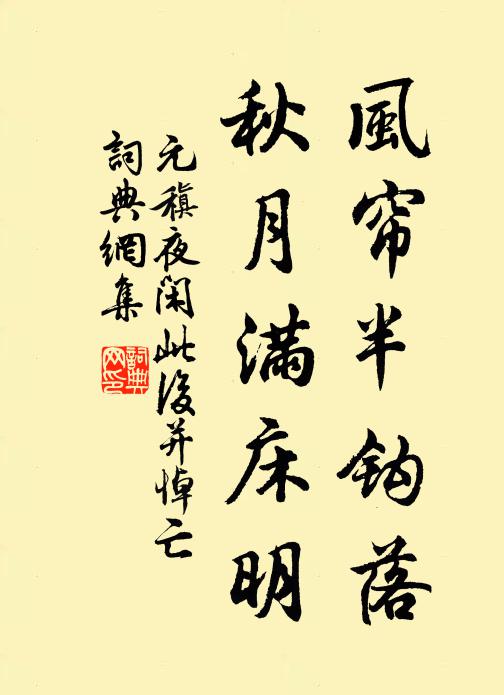 風帘半鈎落
秋月滿床明
元稹夜閑此後并悼亡
詞典網集
詞典網印